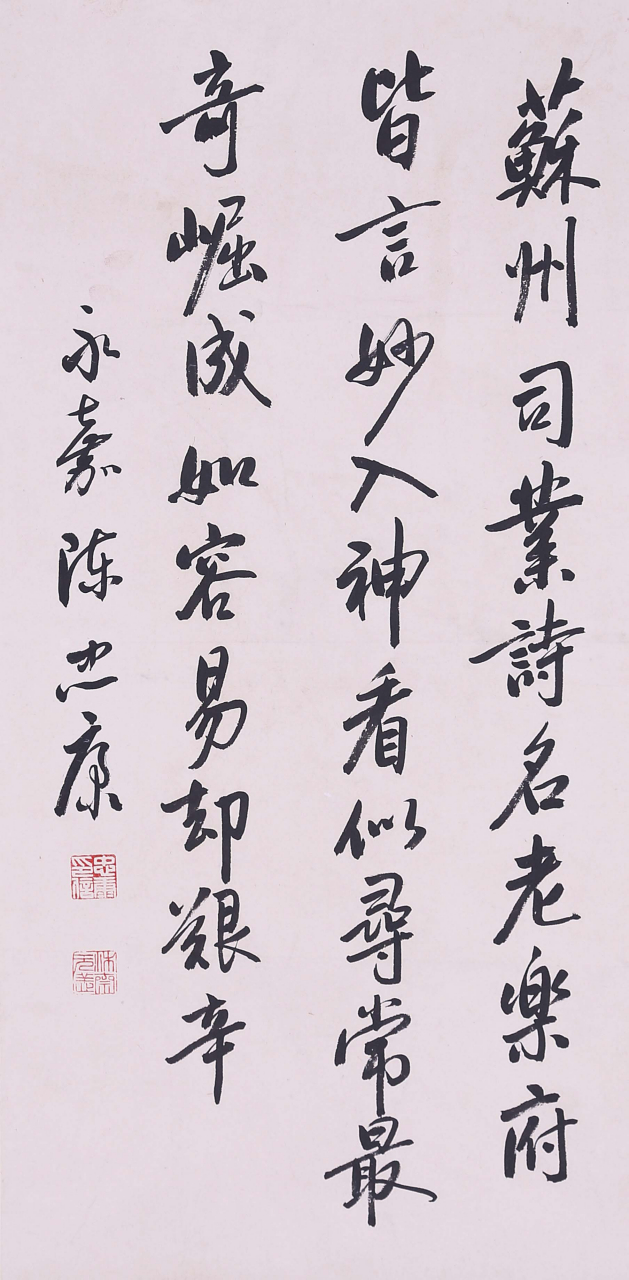 蘇州司業詩名老樂府
皆言妙入神看似尋常最
奇崛成如容易却艱辛
永嘉陳忠康
忠康印信